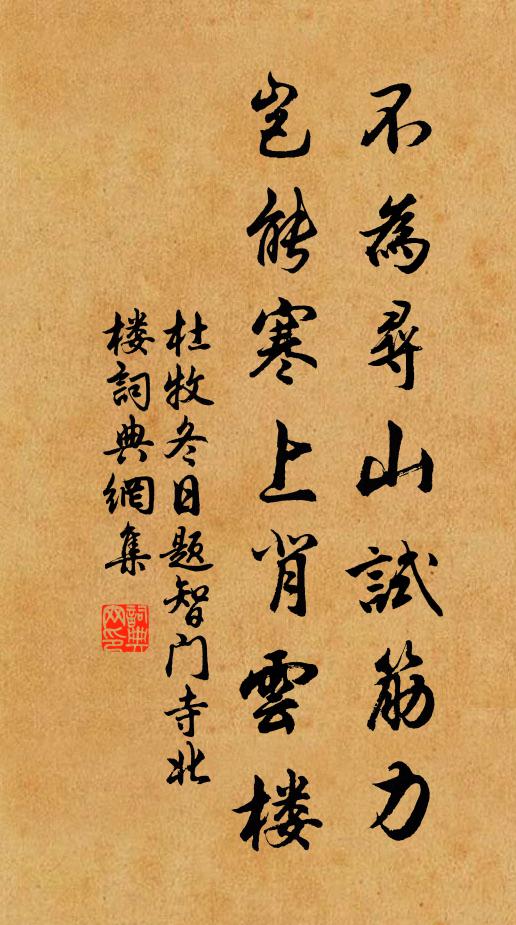 不為尋山試筋力
豈能寒上背雲楼
杜牧冬日題智门寺北
楼詞典網集
詞典
网印